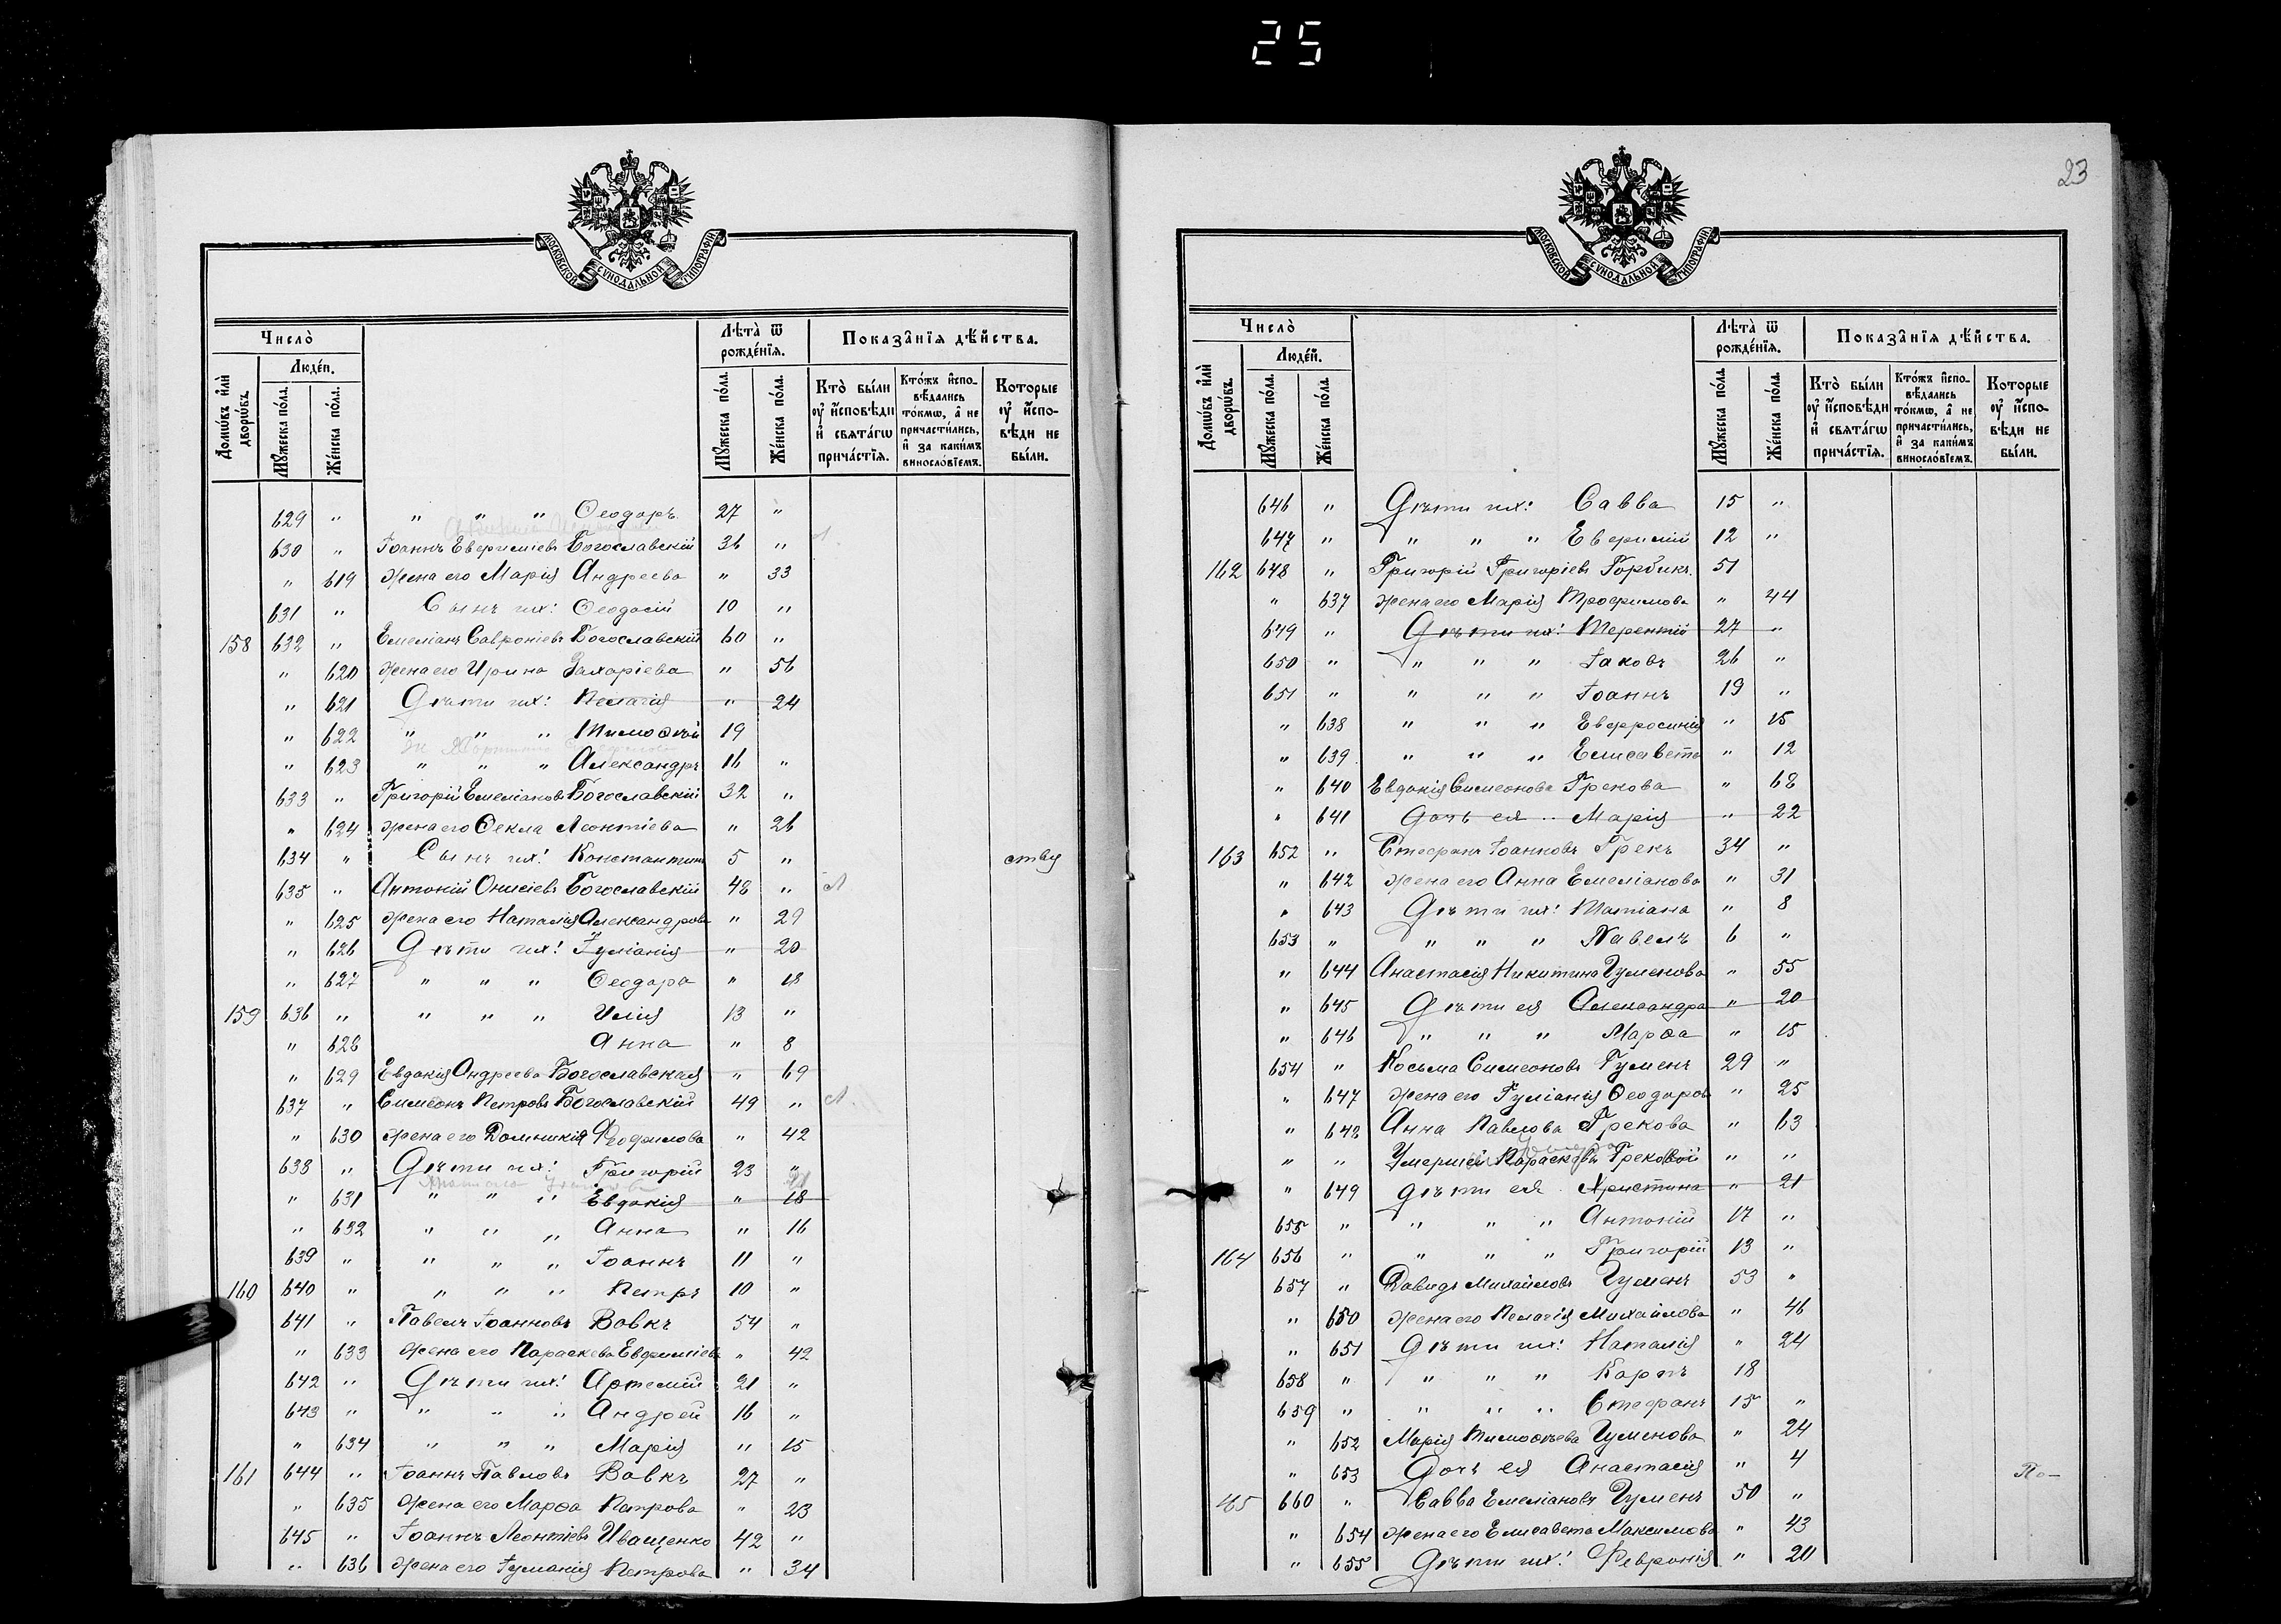 25
23
МОСКОВСКОЙ СѴНОДАЛЬНОЙ ТИПОГРАФІИ
Число̀
Люде́й.
Домѡ́въ и҆лѝ дворѡ́въ.
Мꙋ́жеска по́ла.
Же́нска по́ла.
Лѣта̀ ѿ рожде́нїѧ.
Мꙋ́жеска по́ла.
Же́нска по́ла.
Показа̑нїѧ дѣ́йства.
Кто̀ бы́ли ᲂу҆ и҆́сповѣди и҆ свѧта́гѡ прича́стїѧ.
Кто́жъ и҆сповѣ́дались то́кмѡ, а҆ не причасти́лись, и҆ за каки́мъ винослові́емъ.
Которые ᲂу҆ и҆́сповѣди не бы́ли.
629 " " " " Ѳеодоръ 27 "
630 " Іоаннъ Евфиміевъ Богославскій 36 "
" 619 Жена его Марія Андреева " 33
631 " Сынъ ихъ: Ѳеодосій 10 "
158 632 " Емеліанъ Савроніевъ Богославскій 60 "
" 620 Жена его Ирина Захаріева " 56
" 621 Дѣти ихъ: Пелагія " 24
" 622 " " " Тимоѳей 19
" 623 " " " Александръ 16 "
633 " Григорій Емеліановъ Богославскій 32 "
" 624 Жена его Ѳекла Леонтіева " 26
634 " Сынъ ихъ: Константинъ 5 " ству
635 " Антоній Онисіевъ Богославскій 48 "
" 625 Жена его Наталія Александрова " 29
" 626 Дѣти ихъ: Іуліанія " 20
" 627 " " " Ѳеодора " 18
159 636 " " " " Илія 13 "
" 628 Анна " 8
" 629 Евдокія Андреева Богославская " 69
637 " Симеонъ Петровъ Богославскій 49 "
" 630 Жена его Домникія Ѳеофилова " 42
638 " Дѣти ихъ: Григорій 23 "
" 631 " " " Евдокія " 18
" 632 " " " Анна " 16
639 " " " " Іоаннъ 11 "
160 640 " " " " Петръ 10 "
641 " Павелъ Іоанновъ Вовкъ 54 "
" 633 Жена его Параскева Евфиміева " 42
642 " Дѣти ихъ: Артемій 21 "
643 " " " " Андрей 16 "
" 634 " " " Марія " 15
161 644 " Іоаннъ Павловъ Вовкъ 27 "
" 635 Жена его Марѳа Петрова " 23
645 " Іоаннъ Леонтіевъ Иващенко 42 "
" 636 Жена его Іуліанія Петрова " 34
МОСКОВСКОЙ СѴНОДАЛЬНОЙ ТИПОГРАФІИ
Число̀
Люде́й.
Домѡ́въ и҆лѝ дворѡ́въ.
Мꙋ́жеска по́ла.
Же́нска по́ла.
Лѣта̀ ѿ рожде́нїѧ.
Мꙋ́жеска по́ла.
Же́нска по́ла.
Показа̑нїѧ дѣ́йства.
Кто̀ бы́ли ᲂу҆ и҆́сповѣди и҆ свѧта́гѡ прича́стїѧ.
Кто́жъ и҆сповѣ́дались то́кмѡ, а҆ не причасти́лись, и҆ за каки́мъ винослові́емъ.
Которые ᲂу҆ и҆́сповѣди не бы́ли.
646 " Дѣти ихъ: Савва 15 "
647 " " " " Евфимій 12 "
162 648 " Григорій Григоріевъ Горбикъ 51
" 637 Жена его Марія Трофимова " 44
649 " Дѣти ихъ: Терентій 27 "
650 " " " " Іаковъ 26 "
651 " " " " Іоаннъ 19 "
" 638 " " " Евфросинія " 15
" 639 " " " Елисавета " 12
" 640 Евдокія Симеонова Грекова " 68
" 641 Дочь ея " Марія " 22
163 652 " Стефанъ Іоанновъ Грекъ 34 "
" 642 Жена его Анна Емеліанова " 31
" 643 Дѣти ихъ: Татіана " 8
653 " " " " Павелъ 6 "
" 644 Анастасія Никитина Гуменова " 55
" 645 Дѣти ея Александра " 20
" 646 " " " Марѳа " 15
654 " Косьма Симеоновъ Гуменъ 29 "
" 647 Жена его Іуліанія Ѳеодоров " 25
" 648 Анна Павлова Грекова " 63
" " Умершей Параскевы Грековой " "
" 649 Дѣти ея Христина " 21
655 " " " " Антоній 17 "
164 656 " " " " Григорій 13 "
657 " Давидъ Михайловъ Гуменъ 53 "
" 650 Жена его Пелагія Михайлова " 46
" 651 Дѣти ихъ: Наталія " 24
658 " " " " Карпъ 18
659 " " " " Стефанъ 15 "
" 652 Марія Тимоѳеева Гуменова " 24
" 653 Дочь ея Анастасія " 4 По-
165 660 " Савва Емеліановъ Гуменъ 50 "
" 654 Жена его Елисавета Максимова " 43
" 655 Дѣти ихъ: Февронія " 20